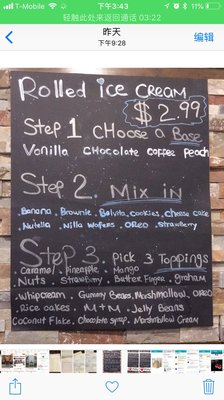 T-Mobile 下午3:43 11%
轻触此处来返回通话 03:22
昨天
下午9:28
编辑
Rolled ice CREAM
$2.99
Step 1 CHoose a Base
Vanilla CHocolate coffee peach
Step 2. Mix in
Banana. Brownie. Belvita. cookies. cheese cake
Nutella . Nilla Wafers . OREO . strawberry
Step 3. Pick 3 Toppings
Caramel. Pineapple. Mango
Nuts. Strawberry. Butter Finger. graham
Whipcream . Gummy Bears. Marshmallow. OREO
Rice cakes. M+M. Jelly Beans
Coconut Flake. Chocolate syrup. Marshmallow Cream